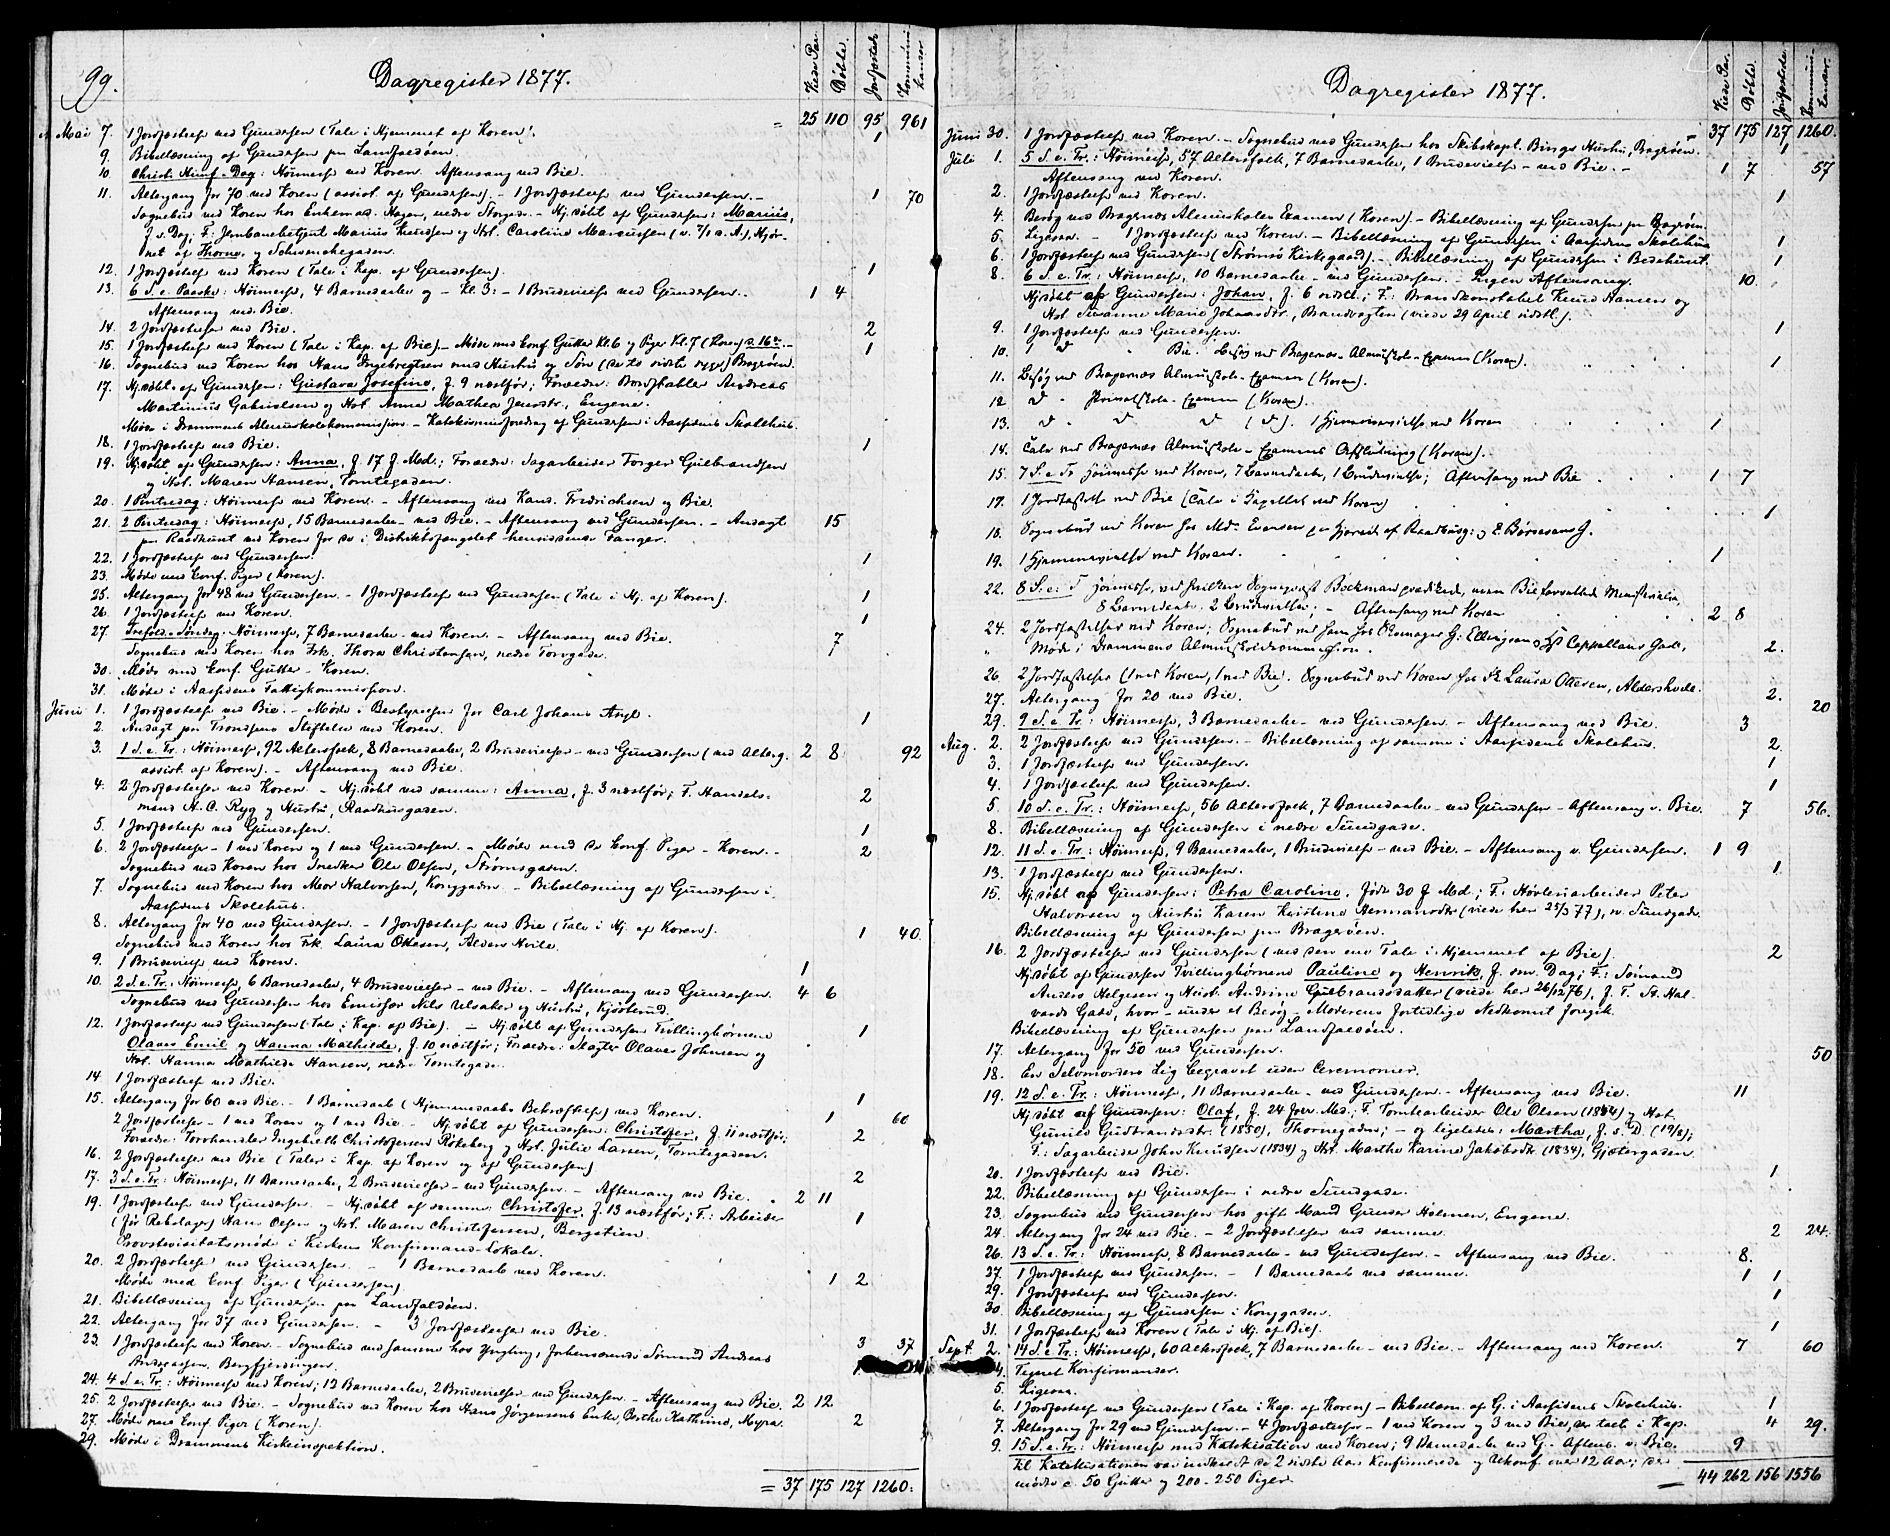 99.
Dagregister 1877.
Viede Par. Døbte. Jordfæstede. Kommunikanter.
= 25 110 95 961
Mai 7. 1 Jordfæstelse ved Gundersen (Tale i Hjemmet af Koren). 1
9. Bibellæsning af Gundersen paa Landfaldøen.
10. Christi Himf. Dag: Høimesse ved Koren. Aftensang ved Bie.
11. Altergang for 70 ved Koren (assist. af Gundersen). - 1 Jordfæstelse ved Gundersen. - 1 70
Sognebud ved Koren hos Enkemad. Hagen, nedre Storgd. - Hj.døbt af Gundersen: Marius,
f. s. Dag; F: Jernbanebetjent Marius Knudsen og Hst. Caroline Marcussen (v. 7/1 a. A.), Hjørnet
af Thorne- og Schwenckegaden.
12. 1 Jordfæstelse ved Koren (Tale i Kap. af Gundersen). 1
13. 6 S. e. Paaske: Høimesse, 4 Barnedaabe og - Kl. 3: - 1 Brudevielse ved Gundersen. 1 4
Aftensang ved Bie.
14. 2 Jordfæstelser ved Bie. 2
15. 1 Jordfæstelse ved Koren (Tale i Kap. af Bie) - Møde med Conf. Gutter Kl. 6 og Piger Kl. 7 (Koren) d. 16de. - 1
16. Sognebud ved Koren hos Hans Ingebregtsen med Hustru og Søn (de to sidste syge) Bragerøen.
17. Hj.døbt af Gundersen: Gustava Josefine, f. 9 næstfør; Forældre: Bordstabler Andreas
Martinius Gabrielsen og Hst. Anne Mathea Jensdtr., Engene.
Møde i Drammens Almueskolekommission. - Katekismusforedrag af Gundersen i Aassidens Skolehus.
18. 1 Jordfæstelse ved Bie. 1
19. Hj.døbt af Gundersen: Anna, f. 17 f. Md.; Forældre: Sagarbeider Torger Gulbrandsen
og Hst. Maren Hansen, Tomtegaden.
20. 1 Pintsedag: Høimesse ved Koren. - Aftensang ved Kand. Fredrichsen og Bie.
21. 2 Pintsedag: Høimesse, 15 Barnedaabe - ved Bie. - Aftensang ved Gundersen. - Andagt 15
paa Raadhuset ved Koren for de i Distriktsfængslet hensiddende Fanger.
22. 1 Jordfæstelse ved Gundersen. 1
23. Møde med Conf. Piger (Koren).
25. Altergang for 48 ved Gundersen. - 1 Jordfæstelse ved Gundersen (Tale i Hj. af Koren). 1
26. 1 Jordfæstelse ved Koren. 1
27. Trefold. Søndag. Høimesse, 7 Barnedaabe - ved Koren. - Aftensang ved Bie. 7
Sognebud ved Koren hos Frk. Thora Christensen, nedre Torvgade.
30. Møde med Conf. Gutter - Koren.
31. Møde i Aassidens Fattigkommission.
Juni 1. 1 Jordfæstelse ved Bie. - Møde i Bestyrelsen for Carl Johans Asyl. 1
2. Andagt paa Trondsens Stiftelse ved Koren.
3. 1 S. e. Tr.: Høimesse, 92 Altersfolk, 8 Barnedaabe, 2 Brudevielser - ved Gundersen (ved Alterg. 2 8 92
assist. af Koren). - Aftensang ved Bie.
4. 2 Jordfæstelser ved Koren. - Hj.døbt ved samme: Anna, f. 3 næstfør; F. Handelsmand 2
A. C. Ryg og Hustru, Raadhusgaden.
5. 1 Jordfæstelse ved Gundersen. 1
6. 2 Jordfæstelser - 1 ved Koren og 1 ved Gundersen. - Møde med de Conf. Piger - Koren. - 2
Sognebud ved Koren hos Snedker Ole Olsen, Strømsgaden.
7. Sognebud ved Koren hos Mor Halvorsen, Konggaden. - Bibellæsning af Gundersen i
Aassidens Skolehus.
8. Altergang for 40 ved Gundersen. - 1 Jordfæstelse ved Bie (Tale i Hj. af Koren). 1 40.
Sognebud ved Koren hos Frk. Laura Ottesen, Alders Hvile.
9. 1 Brudevielse ved Koren. 1
10. 2 S. e. Tr.: Høimesse, 6 Barnedaabe, 4 Brudevielser - ved Bie. - Aftensang ved Gundersen. 4 6
Sognebud ved Gundersen hos Emissær Nils Ulsaker og Hustru, Kjøsterud.
12. 1 Jordfæstelse ved Gundersen (Tale i Kap. af Bie). - Hj.døbt af Gundersen Tvillingbørnene 1
Olaves Emil og Hanna Mathilde, f. 10 næstfør; Forældre: Slagter Olaves Johnsen og
Hst. Hanna Mathilde Hansen, nedre Tomtegade.
14. 1 Jordfæstelse ved Bie. 1
15. Altergang for 60 ved Bie. - 1 Barnedaab (Hjemmedaabs Bekræftelse) ved Koren. 1 60
2 Jordfæstelser - 1 ved Koren og 1 ved Bie. - Hj.døbt af Gundersen: Christofer, f. 11 næstfør; 2
Forældre: Torvhandler Ingebreth Christofersen Røkeberg og Hst. Julie Larsen, Tomtegaden.
16. 2 Jordfæstelser ved Bie (Taler i Kap. af Koren og af Gundersen) 2
17. 3 S. e. Tr.: Høimesse, 11 Barnedaabe, 2 Brudevielser - ved Gundersen. - Aftensang ved Bie. 2 11
19. 1 Jordfæstelse ved Gundersen. - Hj.døbt af samme: Christofer, f. 13 næstfør; F.: Arbeider 1
(før Rebslager) Hans Olsen og Hst. Maren Christofersen, Bergstien.
Provstevisitatsmøde i Kirkens Konfirmand-Lokale.
20. 2 Jordfæstelser ved Gundersen. - 1 Barnedaab ved Koren. 1 2
Møde med Conf. Piger (Gundersen)
21. Bibellæsning af Gundersen paa Landfaldøen.
22. Altergang for 37 ved Gundersen. - 3 Jordfæstelser ved Bie. 3 37
23. 1 Jordfæstelse ved Koren. - Sognebud ved samme hos Yngling, forhenværende Sømand Andreas 1
Andreassen, Bergfjerdingen.
24. 4 S. e. Tr.: Høimesse ved Koren; 12 Barnedaabe, 2 Brudevielser ved Gundersen. - Aftensang ved Bie. 2 12
25. 2 Jordfæstelser ved Bie. - Sognebud ved Koren hos Hans Jørgensens Enke, Berthe Kathrine, Myra. 2
27. Møde med Conf. Piger (Koren).
29. Møde i Drammens Kirkeinspektion.
= 37 175 127 1260.
Dagregister 1877.
Viede Par. Døbte. Jordfæstede. Kommunikanter.
37 175 127 1260.
Juni 30. 1 Jordfæstelse ved Koren. - Sognebud ved Gundersen hos Skibskapt. Bings Hustru, Bragerøen. 1
Juli 1. 5 S. e. Tr.: Høimesse, 57 Altersfolk, 7 Barnedaabe, 1 Brudevielse - ved Bie. - 1 7 57
Aftensang ved Koren.
2. 1 Jordfæstelse ved Koren. 1
4. Besøg ved Bragernæs Almueskoles Examen (Koren). - Bibellæsning af Gundersen paa Bragerøen.
5. Ligesaa. - 1 Jordfæstelse ved Koren. - Bibellæsning af Gundersen i Aassidens Skolehus 1
6. 1 Jordfæstelse ved Gundersen (Strømsø Kirkegaard). - Bibellæsning af Gundersen i Bedehuset. 1
8. 6 S. e. Tr.: Høimesse, 10 Barnedaabe - ved Gundersen. - Ingen Aftensang. 10.
Hj.døbt af Gundersen: Johan, f. 6 sidstl.; F.: Brandkonstabel Knud Hansen og
Hst. Susanne Marie Johansdtr., Brandvagten (viede 29 April sidstl.).
9. 1 Jordfæstelse ved Gundersen. 1
10. 1 d° Bie. Besøg ved Bragernæs Almueskole-Examen (Koren). 1
11. Besøg ved Bragernæs Almueskole-Examen (Koren).
12 d° - Privatskole-Examen (Koren).
13. d° d° d° (d°). 1 Hjemmevielse ved Koren 1
14. Tale ved Bragernæs Almueskole-Examens Afslutning (Koren).
15. 7 S. e. Tr. Høimesse ved Koren, 7 Barnedaabe, 1 Brudevielse; Aftensang ved Bie 1 7
17. 1 Jordfæstelse ved Bie (Tale i Capellet ved Koren) 1
18. Sognebud ved Koren hos Md. Evensen paa Hjørnet af Raadhusg: og E. Børresens G.
19. 1 Hjemmevielse ved Koren. 1
22. 8 S. e. T. Høimesse, ved hvilken Sognepræst Bockman prædikede, mens Bie forrettede Ministerialia,
8 Barnedaabe. 2 Brudevielser; - Aftensang ved Koren 2 8
24. 2 Jordfæstelser ved Koren; Sognebud ved ham hos Skomager G. Ellingsen i Cappellens Gade, 2.
" Møde i Drammens Almueskolecommission.
26. 2 Jordfæstelser (1 ved Koren, 1 ved Bie). Sognebud ved Koren hos Fr. Laura Ottesen, Aldershvile. 2.
27. Altergang for 20 ved Bie. 20
29. 9 S. e. Tr.: Høimesse, 3 Barnedaabe - ved Gundersen. - Aftensang ved Bie. 3
Aug. 2. 2 Jordfæstelser ved Gundersen. - Bibellæsning af samme i Aassidens Skolehus. 2.
3. 1 Jordfæstelse ved Gundersen. 1
4. 1 Jordfæstelse ved Gundersen. 1
5. 10 S. e. Tr.: Høimesse, 56 Altersfolk, 7 Barnedaabe - ved Gundersen - Aftensang v. Bie. 7 56.
8. Bibellæsning af Gundersen i nedre Sundgade.
12. 11 S. e. Tr.: Høimesse, 9 Barnedaabe, 1 Brudevielse - ved Bie. - Aftensang v. Gundersen. 1 9
13. 1 Jordfæstelse ved Gundersen. 1.
15. Hj.døbt af Gundersen: Petra Caroline, født 30 f. Md.; F. Høvleriarbeider Peter
Halvorsen og Hustru Karen Kristine Hermansdtr (viede her 25/3 77), n. Sundgade.
Bibellæsning af Gundersen paa Bragerøen.
16. 2 Jordfæstelser ved Gundersen (ved den ene Tale i Hjemmet af Bie). 2
Hj.døbt af Gundersen Tvillingbørnene Pauline og Henrik, f. sm. Dag; F.: Sømand
Anders Helgesen og Hust. Andrine Gulbrandsdatter (viede her 26/12 76), f. T. St. Halvards
Gade, hvor - under et Besøg - Moderens fortidlige Nedkomst foregik.
Bibellæsning af Gundersen paa Landfaldøen.
17. Altergang for 50 ved Gundersen. 50
18. En Selvmorders Lig begravet uden Ceremonier.
19. 12 S. e. Tr.: Høimesse, 11 Barnedaabe - ved Gundersen - Aftensang ved Bie. 11
Hj.døbt af Gundersen: Olaf, f. 24 forr. Md.; F. Tomtearbeider Ole Olsen (1844) og Hst.
Gunild Gudbrandsdtr. (1850), Thornegaden; - og ligeledes: Martha, f. s. D. (19/8);
F.: Sagarbeider John Knudsen (1834) og Hst. Marthe Karine Jakobsdtr (1834), Gjætergaden.
20. 1 Jordfæstelse ved Bie. 1
22. Bibellæsning af Gundersen i nedre Sundgade.
23. Sognebud ved Gundersen hos gift Mand Gunder Holmen, Engene.
24. Altergang for 24 ved Bie. - 2 Jordfæstelser ved samme. 2 24.
26. 13 S. e. Tr.: Høimesse, 8 Barnedaabe - ved Gundersen. - Aftensang ved Bie. 8.
27. 1 Jordfæstelse ved Gundersen. - 1 Barnedaab ved samme. 1 1
29. 1 Jordfæstelse ved Gundersen. 1
30. Bibellæsning af Gundersen i Konggaden.
31. 1 Jordfæstelse ved Koren (Tale i Hj. af Bie). 1
Sept. 2. 14 S. e. Tr.: Høimesse, 60 Altersfolk, 7 Barnedaabe - ved Bie. - Aftensang ved Koren. 7 60
4. Tegnet Konfirmander.
5. Ligesaa.
6. 1 Jordfæstelse ved Gundersen (Tale i Kap. af Koren) - Bibellæsn. af G. i Aassidens Skolehus. 1
7. Altergang for 29 ved Gundersen. - 4 Jordfæstelser - 1 ved Koren og 3 ved Bie, der talt i Kap. 4 29.
9. 15 S. e. Tr.: Høimesse med Katekisation ved Koren; 9 Barnedaabe ved G. - Aftens. v. Bie. 9
Til Katekisationen var indkaldt de 2 sidste Aars Konfirmerede og Ukonf. over 12 Aar; der
mødte c. 50 Gutter og 200-250 Piger.
44 262 156 1556